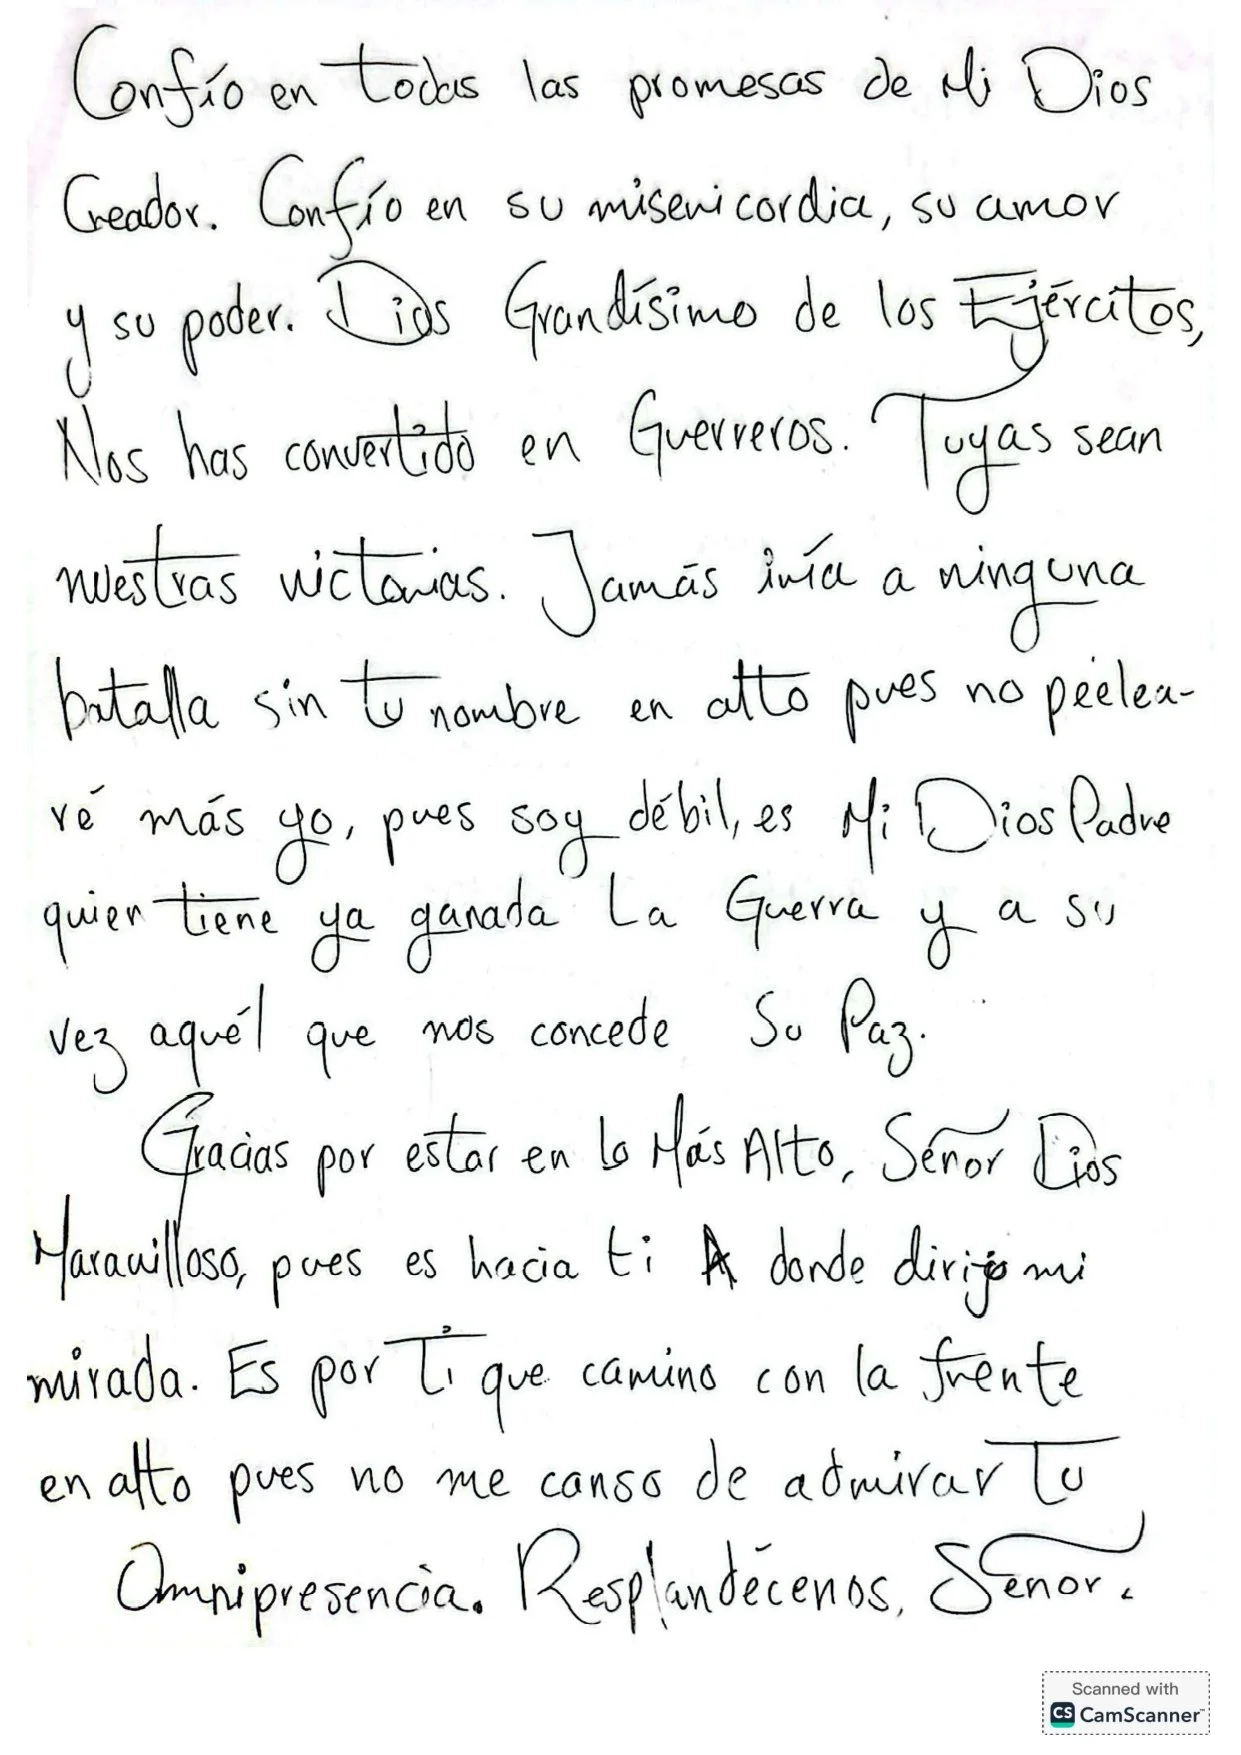 Confío en todas las promesas de Mi Dios
Creador. Confío en su misericordia, su amor
y su poder. Dios Grandísimo de los Ejércitos,
Nos has convertido en Guerreros. Tuyas sean
nuestras victorias. Jamás iría a ninguna
batalla sin tu nombre en alto pues no peelea-
ré más yo, pues soy débil, es Mi Dios Padre
quien tiene ya ganada La Guerra y a su
vez aquél que nos concede Su Paz.
Gracias por estar en lo Más Alto, Señor Dios
Maravilloso, pues es hacia ti A donde dirijo mi
mirada. Es por Ti que camino con la frente
en alto pues no me canso de admirar Tu
Omnipresencia. Resplandécenos, Señor.
Scanned with
CS CamScanner